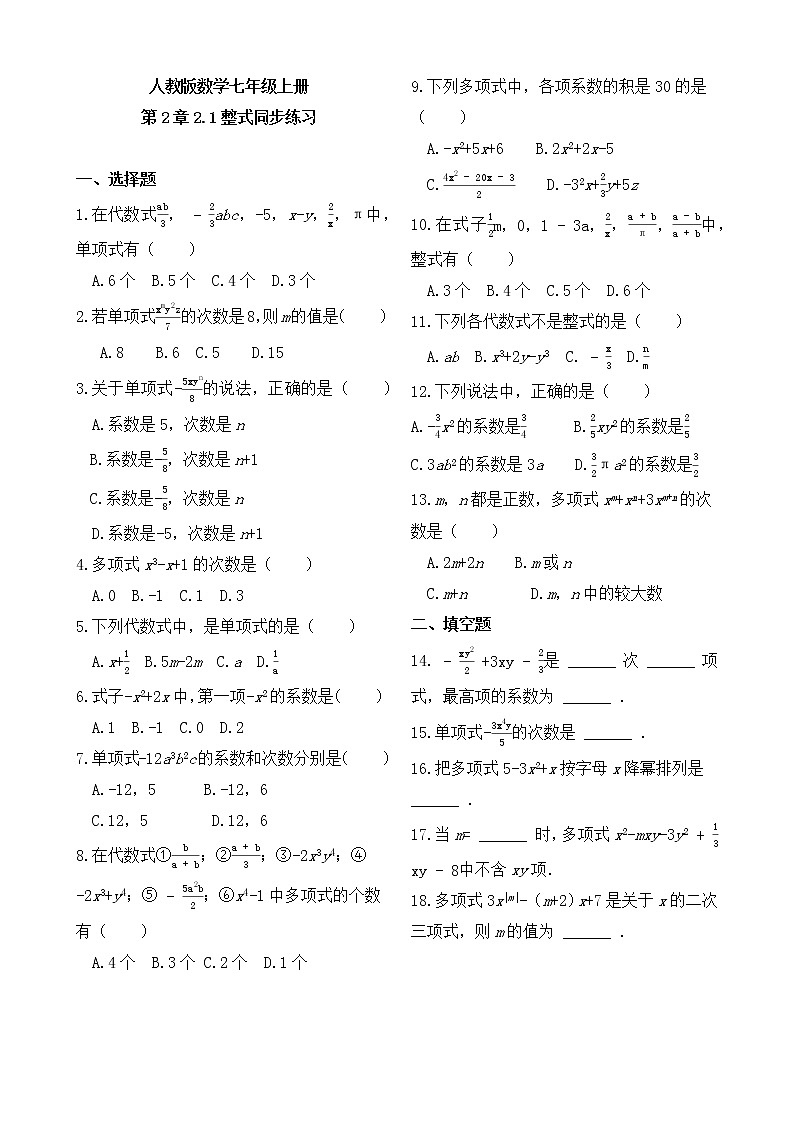 人教版数学七年级上册
第2章2.1整式同步练习
一、选择题
1.在代数式ab/3, −2/3abc,-5, x-y, 2/x, π中,
单项式有( )
A.6个 B.5个 C.4个 D.3个
2.若单项式xᵐy²z/7的次数是8,则m的值是( )
A.8 B.6 C.5 D.15
3.关于单项式-5xyⁿ/8的说法,正确的是( )
A.系数是5,次数是n
B.系数是-5/8,次数是n+1
C.系数是-5/8,次数是n
D.系数是-5,次数是n+1
4.多项式x³-x+1的次数是( )
A.0 B.-1 C.1 D.3
5.下列代数式中,是单项式的是( )
A.x+1/2 B.5m-2m C.a D.1/a
6.式子-x²+2x中,第一项-x²的系数是( )
A.1 B.-1 C.0 D.2
7.单项式-12a³b²c的系数和次数分别是( )
A.-12,5 B.-12,6
C.12,5 D.12,6
8.在代数式①b/(a + b);②(a + b)/3;③-2x³y⁴;④
-2x³+y⁴;⑤ −5a²b/2;⑥x⁴-1中多项式的个数
有( )
A.4个 B.3个 C.2个 D.1个
9.下列多项式中,各项系数的积是30的是
( )
A.-x²+5x+6 B.2x²+2x-5
C.(4x² − 20x − 3)/2 D.-3²x+2/3y+5z
10.在式子1/2m,0,1 − 3a,2/x,(a + b)/π,(a − b)/(a + b)中,
整式有( )
A.3个 B.4个 C.5个 D.6个
11.下列各代数式不是整式的是( )
A.ab B.x³+2y-y³ C. −x/3 D.n/m
12.下列说法中,正确的是( )
A.-3/4x²的系数是3/4 B.2/5xy²的系数是2/5
C.3ab²的系数是3a D.3/2πa²的系数是3/2
13.m,n都是正数,多项式xᵐ+xⁿ+3xᵐ⁺ⁿ的次
数是( )
A.2m+2n B.m或n
C.m+n D.m,n中的较大数
二、填空题
14. −xy²/2 +3xy − 2/3是 ______ 次 ______ 项
式,最高项的系数为 ______ .
15.单项式-3x⁴y/5的次数是 ______ .
16.把多项式5-3x²+x按字母x降幂排列是
______ .
17.当m= ______ 时,多项式x²-mxy-3y² + 1/3
xy − 8中不含xy项.
18.多项式3x|m|-(m+2)x+7是关于x的二次
三项式,则m的值为 ______ .